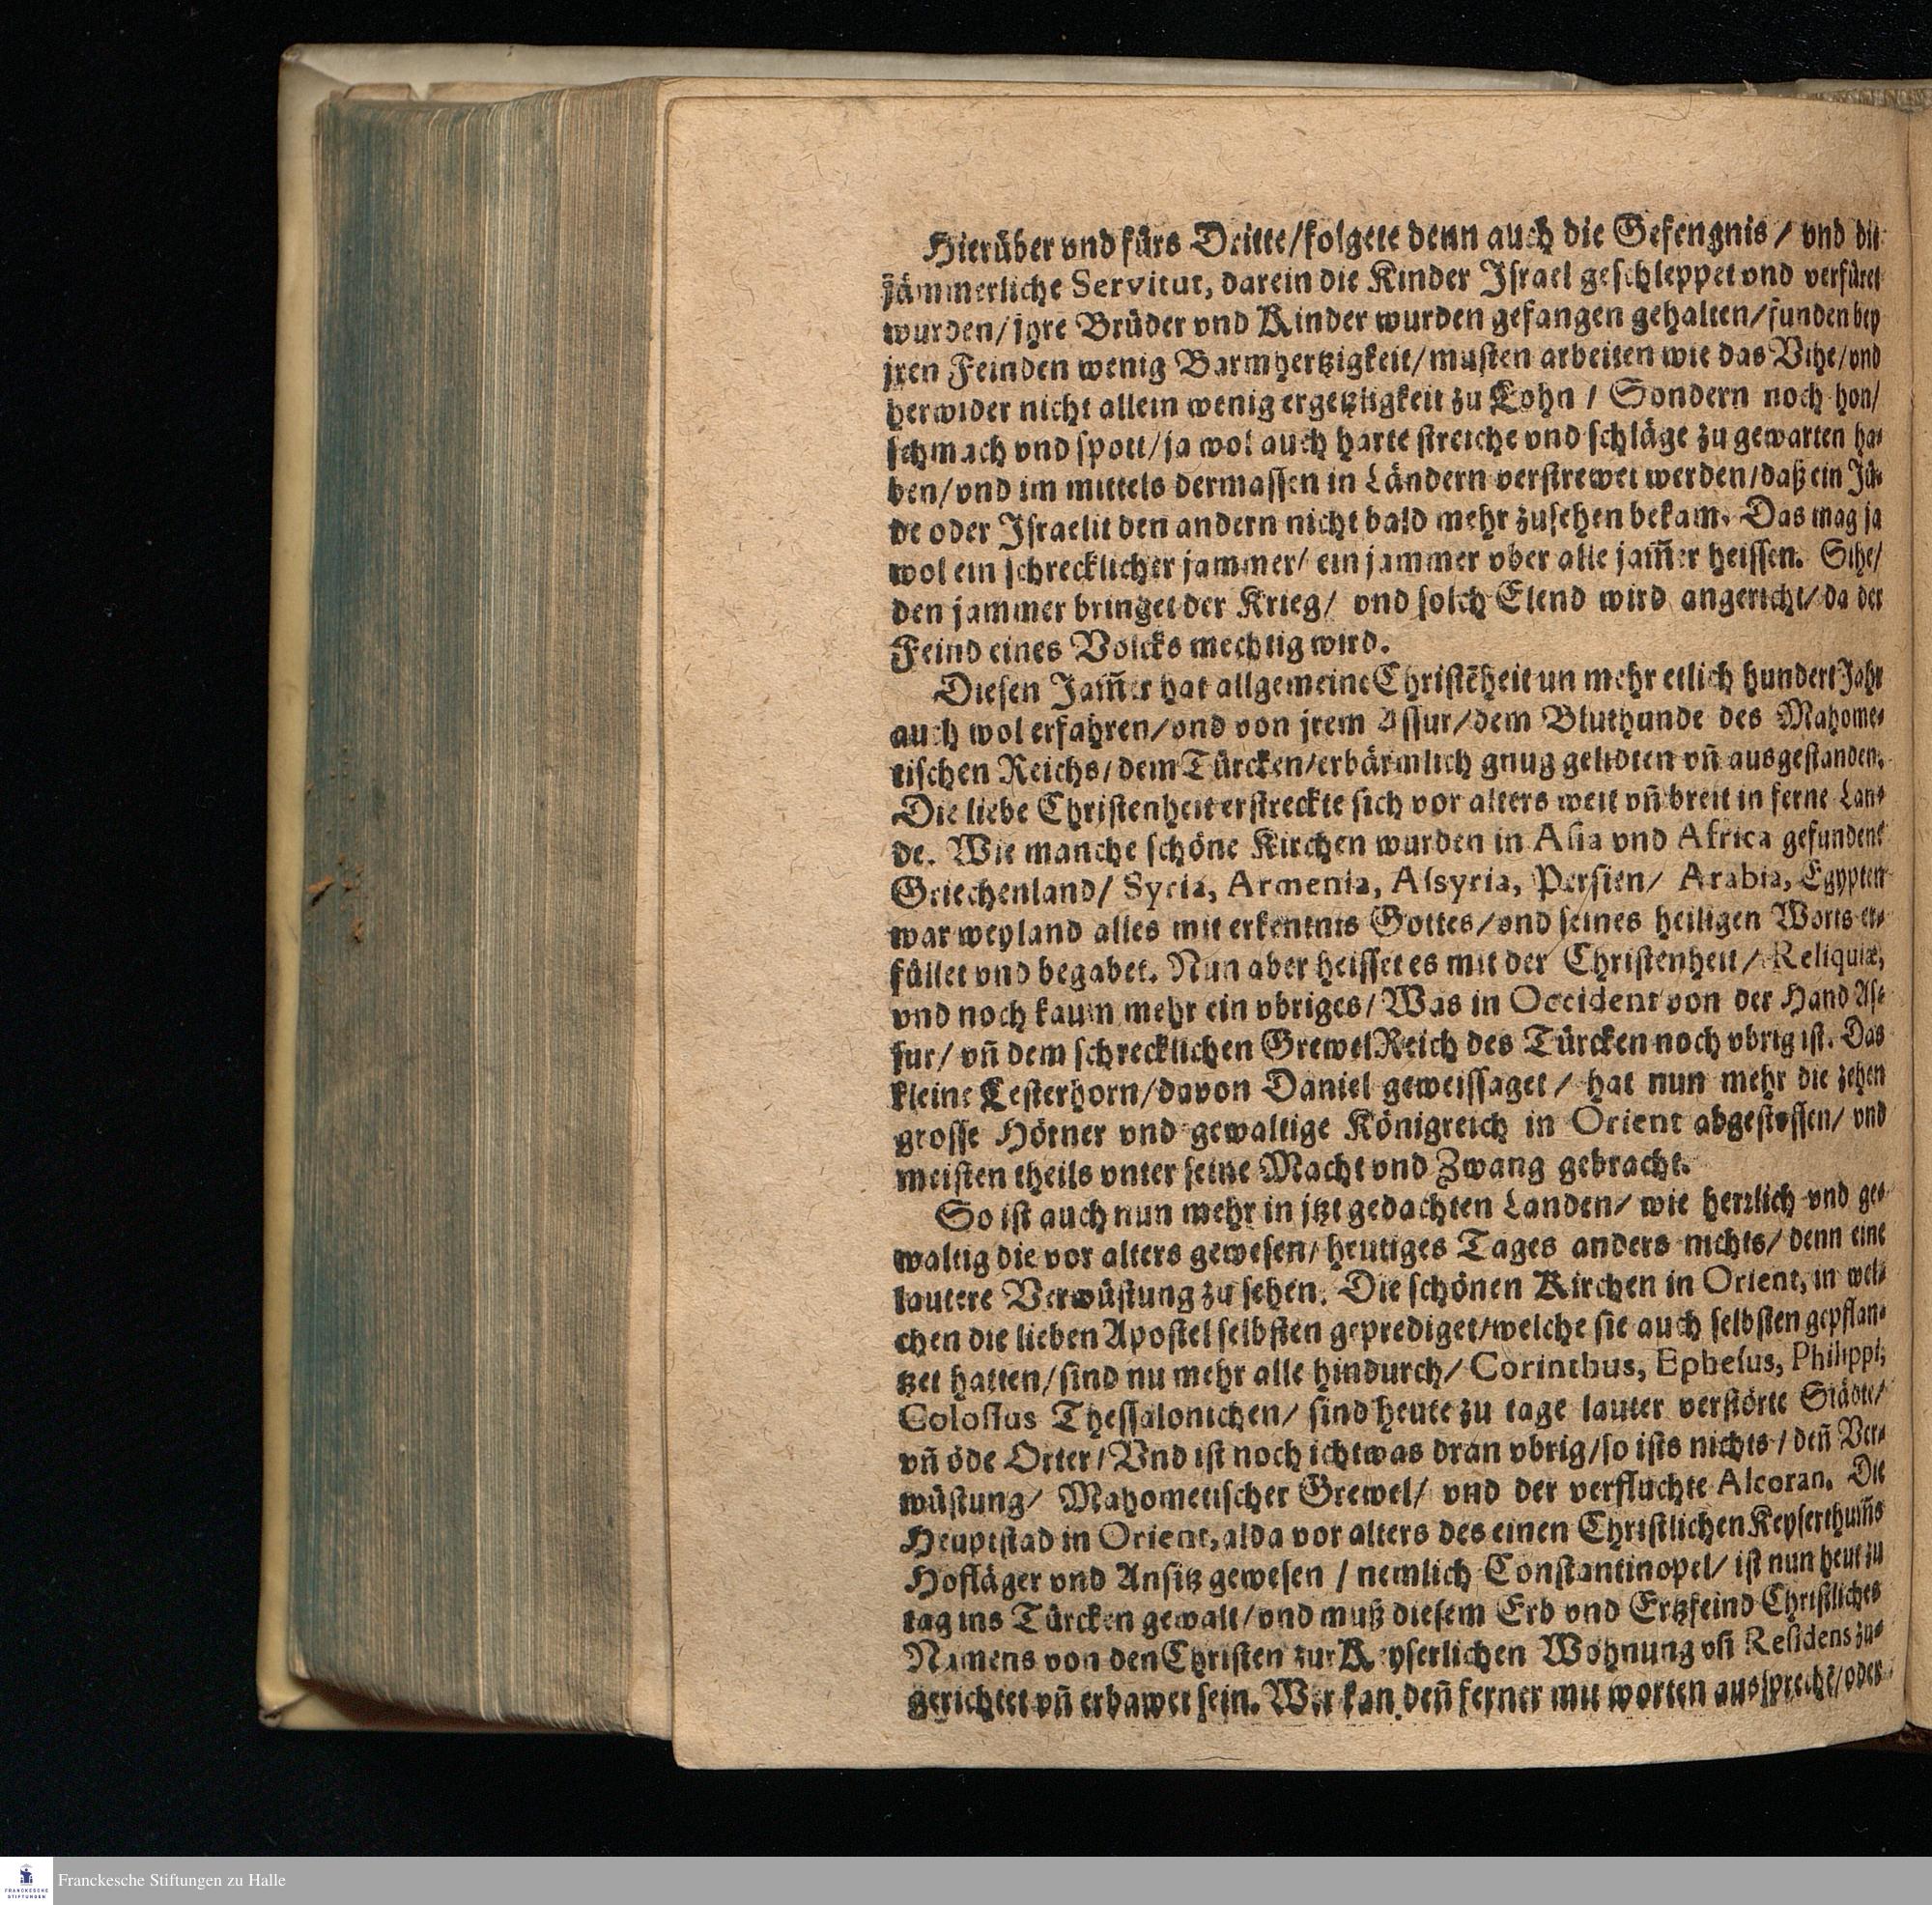 Hierüber vnd fürs Dritte/folgete denn auch die Gefengnis/ vnd die
jämmerliche Servitut, darein die Kinder Israel geschleppet vnd verfüret
wurden/ jhre Brüder vnd Kinder wurden gefangen gehalten/funden bey
jren Feinden wenig Barmhertzigkeit/musten arbeiten wie das Vihe/vnd
herwider nicht allein wenig ergetzligkeit zu Lohn / Sondern noch hon/
schmach vnd spott/ja wol auch harte streiche vnd schläge zu gewarten ha-
ben/vnd im mittels dermassen in Ländern verstrewet werden/daß ein Jü-
de oder Israelit den andern nicht bald mehr zusehen bekam. Das mag ja
wol ein schrecklicher jammer/ ein jammer vber alle jam̃er heissen. Sihe/
den jammer bringet der Krieg/ vnd solch Elend wird angericht/da der
Feind eines Volcks mechtig wird.
Diesen Jam̃er hat allgemeine Christẽheit un mehr etlich hundert Jahr
auch wol erfahren/vnd von jrem Assur/dem Bluthunde des Mahome-
tischen Reichs/dem Türcken/erbärmlich gnug gelidten vñ ausgestanden.
Die liebe Christenheit erstreckte sich vor alters weit vñ breit in ferne Lan-
de. Wie manche schöne Kirchen wurden in Asia vnd Africa gefunden?
Griechenland/ Syria, Armenia, Assyria, Persien/ Arabia, Egypten
war weyland alles mit erkentnis Gottes/vnd seines heiligen Worts er-
füllet vnd begabet. Nun aber heisset es mit der Christenheit/ Reliquiæ,
vnd noch kaum mehr ein vbriges/ Was in Occident von der Hand As-
sur/ vñ dem schrecklichen GrewelReich des Türcken noch vbrig ist. Das
kleine Lesterhorn/davon Daniel geweissaget/ hat nun mehr die zehen
grosse Hörner vnd gewaltige Königreich in Orient abgestossen/ vnd
meisten theils vnter seine Macht vnd Zwang gebracht.
So ist auch nun mehr in jtzt gedachten Landen/ wie herrlich vnd ge-
waltig die vor alters gewesen/ heutiges Tages anders nichts/ denn eine
lautere Verwüstung zu sehen. Die schönen Kirchen in Orient, in wel-
chen die lieben Apostel selbsten geprediget/welche sie auch selbsten gepflan-
tzet hatten/sind nu mehr alle hindurch/ Corinthus, Ephesus, Philippi,
Colossus Thessalonichen/ sind heute zu tage lauter verstörte Städte/
vñ öde Örter/ Vnd ist noch ichtwas dran vbrig/so ists nichts / deñ Ver-
wüstung/ Mahometischer Grewel/ vnd der verfluchte Alcoran. Die
Heuptstad in Orient, alda vor alters des einen Christlichen Keyserthum̃s
Hofläger vnd Ansitz gewesen / nemlich Constantinopel/ ist nun heut zu
tag ins Türcken gewalt/vnd muß diesem Erb vnd Ertzfeind Christliches
Namens von den Christen zur Keyserlichen Wohnung vñ Residens zu-
gerichtet vñ erbawet sein. Wer kan deñ ferner mit worten aussprechẽ/oder
Franckesche Stiftungen zu Halle
FRANCKESCHE
STIFTUNGEN